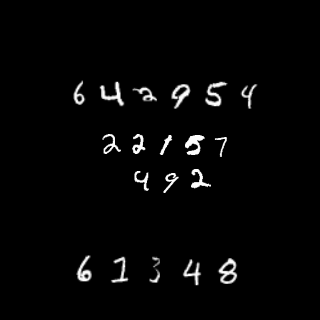 6 4 2 9 5 4
2 2 1 5 7
4 9 2
6 1 3 4 8